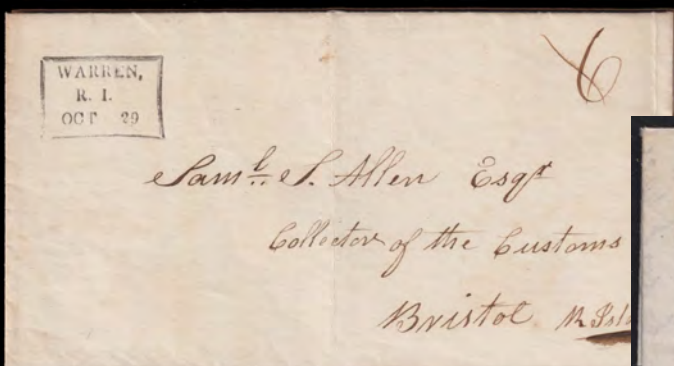 WARREN,
R. I.
OCT 29
6
Saml. S. Allen Esqr
Collector of the Customs
Bristol R Isl